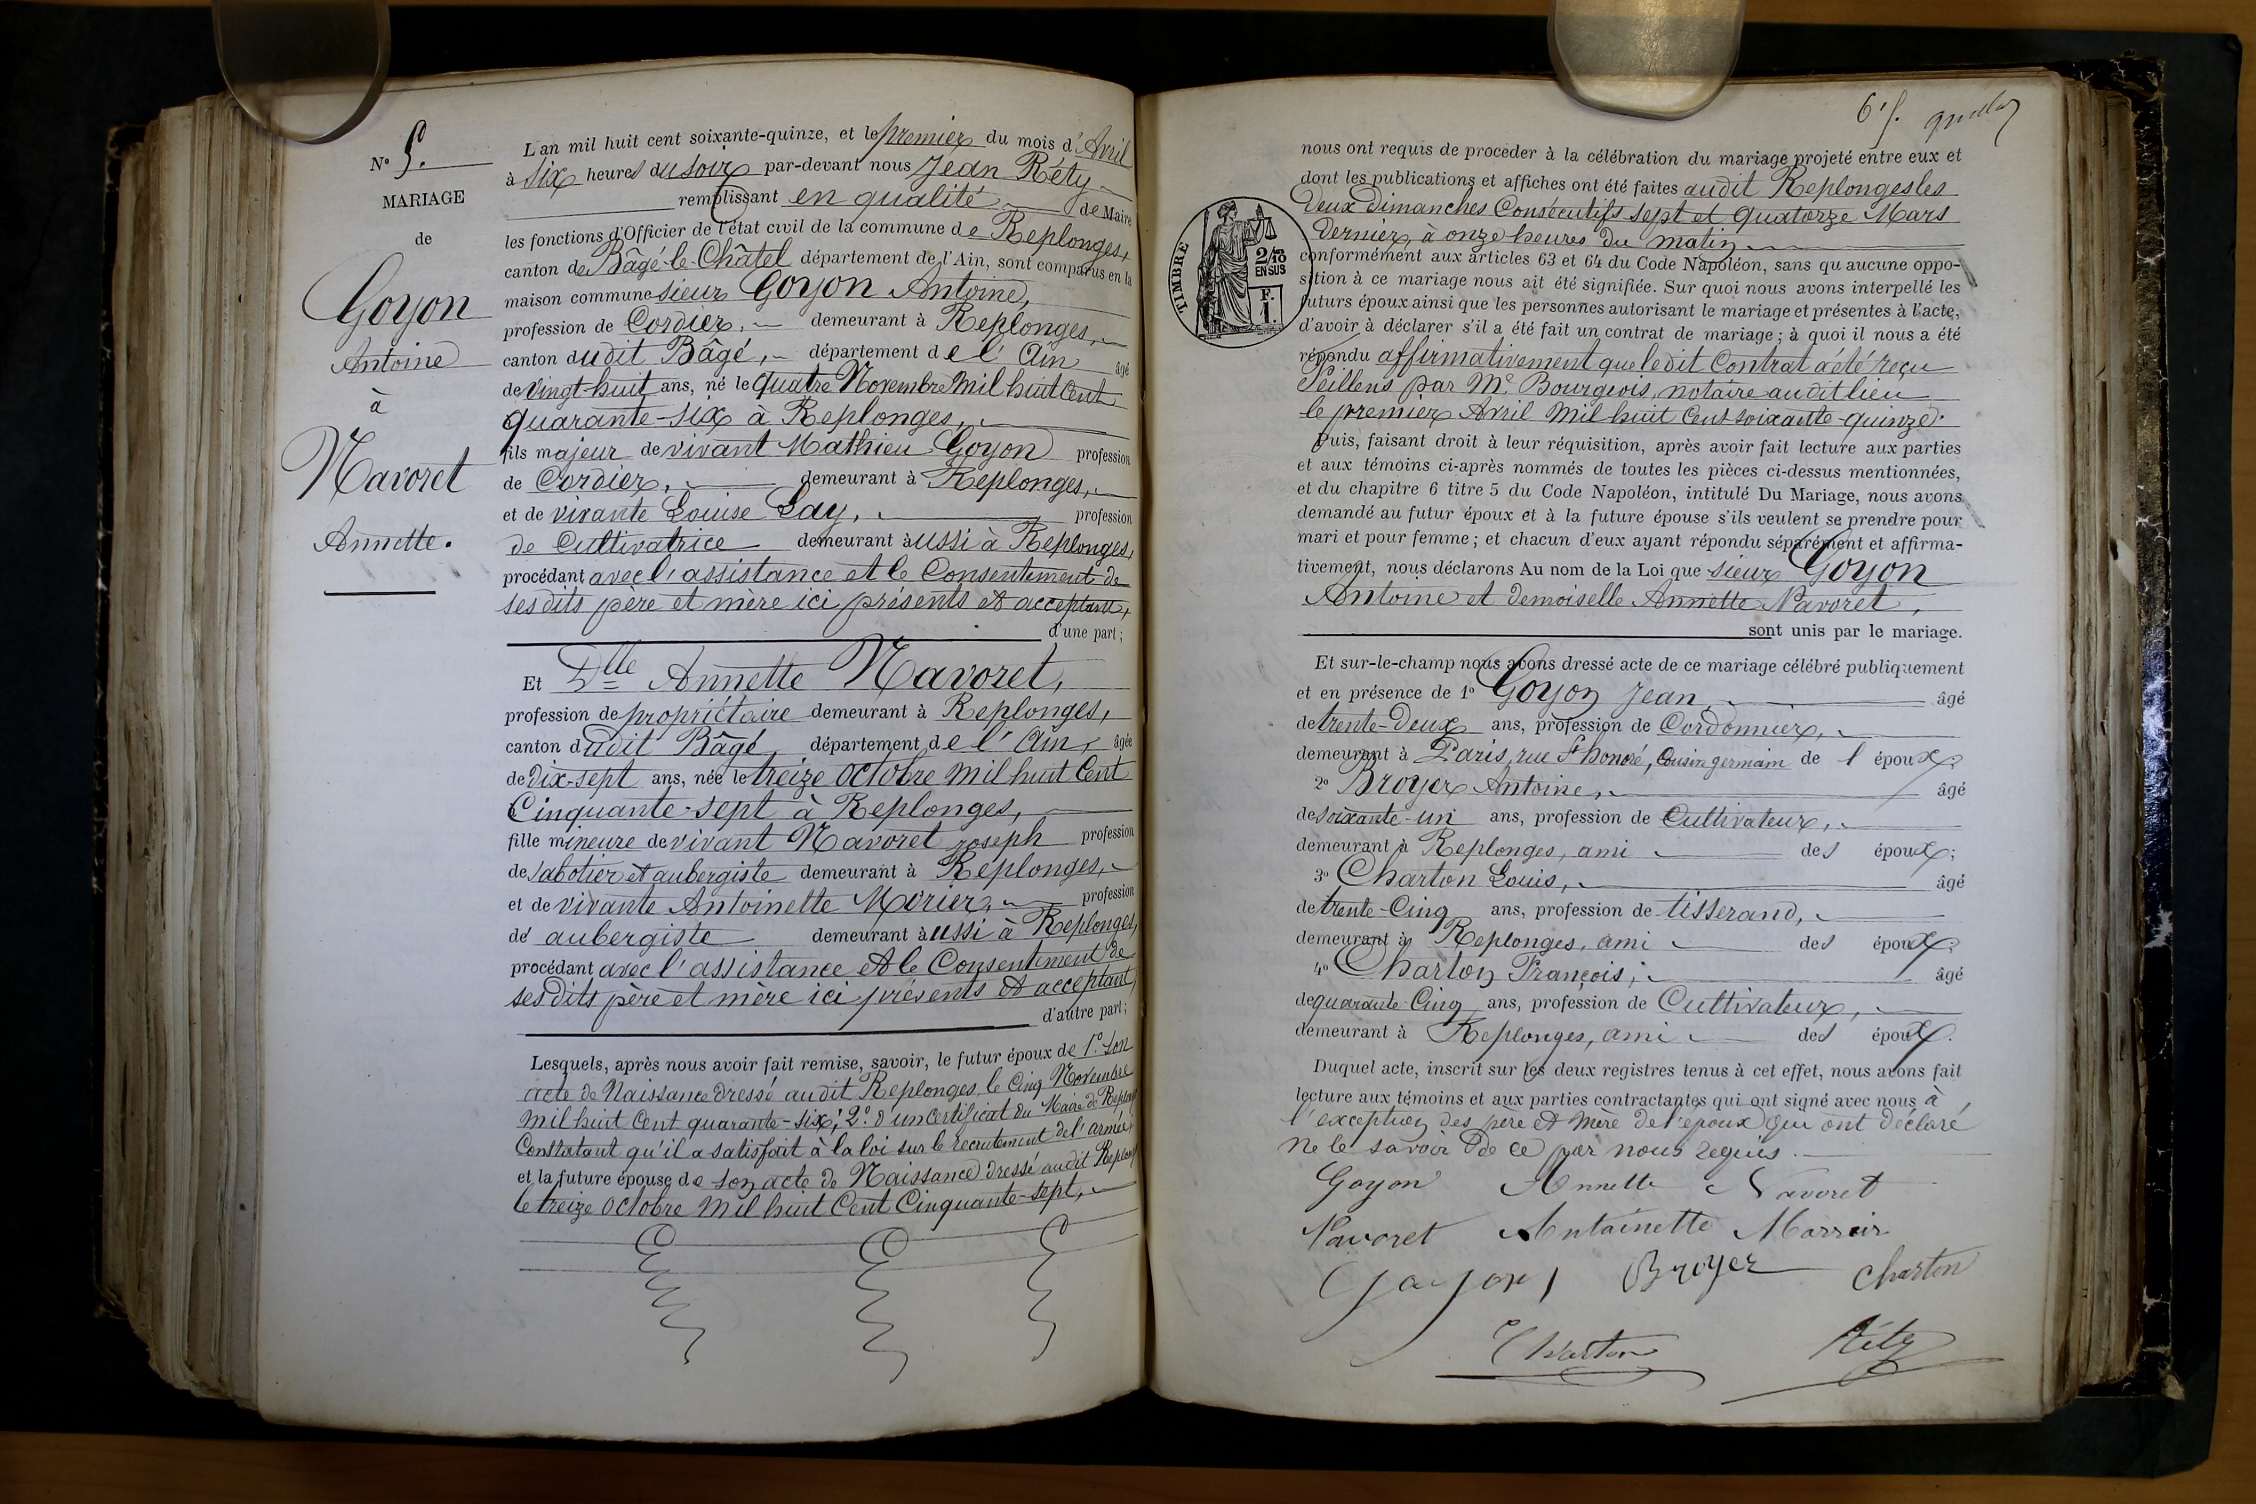 N° 5.
MARIAGE
de
Goyon
Antoine
à
Navoret
Annette.
L'an mil huit cent soixante-quinze, et le premier du mois d'Avril
à six heures du soir par-devant nous Jean Réty
remplissant en qualité de Maire
les fonctions d'Officier de l'état civil de la commune de Replonges,
canton de Bâgé-le-Châtel département de l'Ain, sont comparus en la
maison commune sieur Goyon Antoine,
profession de Cordier, demeurant à Replonges,
canton dudit Bâgé, département de l'Ain âgé
de vingt-huit ans, né le quatre Novembre mil huit Cent
quarante-six à Replonges,
fils majeur de vivant Mathieu Goyon profession
de Cordier, demeurant à Replonges,
et de vivante Louise Lay, profession
de Cultivatrice demeurant aussi à Replonges,
procédant avec l'assistance et le Consentement de
ses dits père et mère ici présents et acceptant,
d'une part;
Et Dlle Annette Navoret,
profession de propriétaire demeurant à Replonges,
canton dudit Bâgé, département de l'Ain, âgée
de dix-sept ans, née le treize octobre mil huit Cent
Cinquante-sept à Replonges,
fille mineure de vivant Navoret Joseph profession
de sabotier et aubergiste demeurant à Replonges,
et de vivante Antoinette Morier, profession
de aubergiste demeurant aussi à Replonges,
procédant avec l'assistance et le Consentement de
ses dits père et mère ici présents et acceptant,
d'autre part;
Lesquels, après nous avoir fait remise, savoir, le futur époux de 1° son
acte de Naissance dressé audit Replonges le Cinq Novembre
mil huit Cent quarante-six; 2° d'un Certificat du Maire de Replonges
Constatant qu'il a satisfait à la loi sur le recrutement de l'armée,
et la future épouse de son acte de Naissance dressé audit Replonges
le treize octobre mil huit Cent Cinquante-sept,
TIMBRE
2/10
EN SUS
F.
1.
nous ont requis de procéder à la célébration du mariage projeté entre eux et
dont les publications et affiches ont été faites audit Replonges les
deux dimanches Consécutifs sept et quatorze Mars
dernier, à onze heures du matin
conformément aux articles 63 et 64 du Code Napoléon, sans qu'aucune oppo-
sition à ce mariage nous ait été signifiée. Sur quoi nous avons interpellé les
futurs époux ainsi que les personnes autorisant le mariage et présentes à l'acte,
d'avoir à déclarer s'il a été fait un contrat de mariage; à quoi il nous a été
répondu affirmativement que ledit Contrat a été reçu
Feillens par Me Bourgeois, notaire audit lieu
le premier Avril mil huit Cent soixante-quinze.
Puis, faisant droit à leur réquisition, après avoir fait lecture aux parties
et aux témoins ci-après nommés de toutes les pièces ci-dessus mentionnées,
et du chapitre 6 titre 5 du Code Napoléon, intitulé Du Mariage, nous avons
demandé au futur époux et à la future épouse s'ils veulent se prendre pour
mari et pour femme; et chacun d'eux ayant répondu séparément et affirma-
tivement, nous déclarons Au nom de la Loi que sieur Goyon
Antoine et demoiselle Annette Navoret,
sont unis par le mariage.
Et sur-le-champ nous avons dressé acte de ce mariage célébré publiquement
et en présence de 1° Goyon Jean, âgé
de trente-deux ans, profession de Cordonnier,
demeurant à Paris, rue St honoré, Cousin germain de l'époux;
2° Broyer Antoine, âgé
de soixante-un ans, profession de Cultivateur,
demeurant à Replonges, ami des époux;
3° Charton Louis, âgé
de trente-Cinq ans, profession de tisserand,
demeurant à Replonges, ami des époux;
4° Charton François, âgé
de quarante-Cinq ans, profession de Cultivateur,
demeurant à Replonges, ami des époux.
Duquel acte, inscrit sur les deux registres tenus à cet effet, nous avons fait
lecture aux témoins et aux parties contractantes qui ont signé avec nous à
l'exception des père et mère de l'époux qui ont déclaré
ne le savoir de ce par nous requis.
Goyon Annette Navoret
Navoret Antainette Morrier
Goyon Broyer Charton
Charton Réty